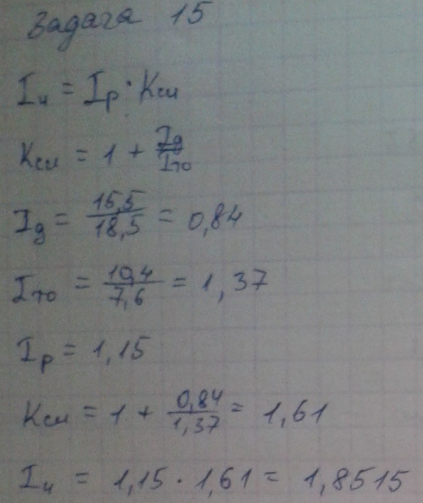 Задача 15
Iи = Iр · Ксм
Ксм = 1 + Iд/Iто
Iд = 15,5/18,5 = 0,84
Iто = 10,4/7,6 = 1,37
Iр = 1,15
Ксм = 1 + 0,84/1,37 = 1,61
Iи = 1,15 · 1,61 = 1,8515